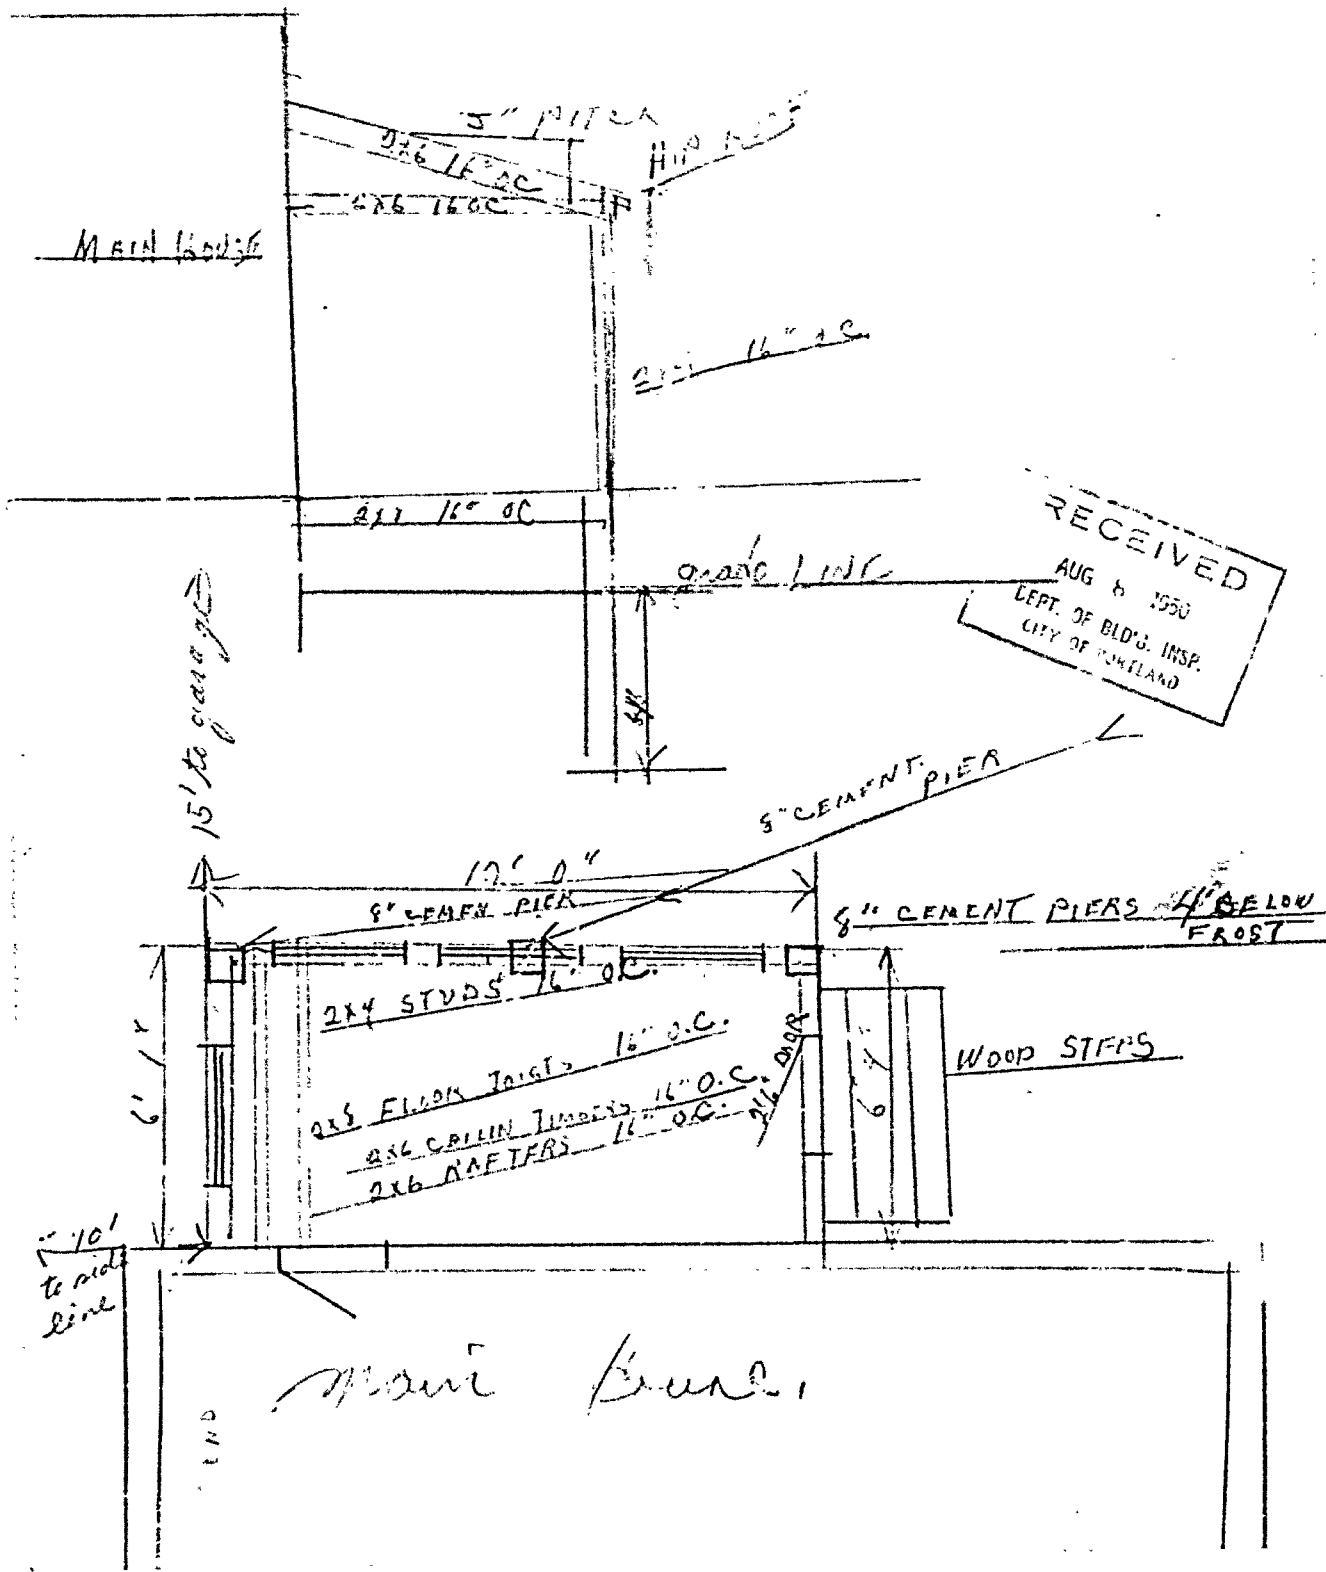 5" PITCH
2x6 16" OC
HIP
16 OC
MAIN HOUSE
16" OC
16" OC
grade LINE
RECEIVED
AUG 8 1950
DEPT. OF BLD'G. INSP.
CITY OF PORTLAND
15' to garage
8" CEMENT PIER
0"
8" CEMEN PIER
8" CEMENT PIERS 4' BELOW
FROST
2x4 STUDS 16" O.C.
2x8 FLOOR JOISTS 16" O.C.
2x6 CEILIN TIMBERS 16" O.C.
2x6 RAFTERS 16" O.C.
DOOR
WOOD STEPS
10'
to side
line
Main House.